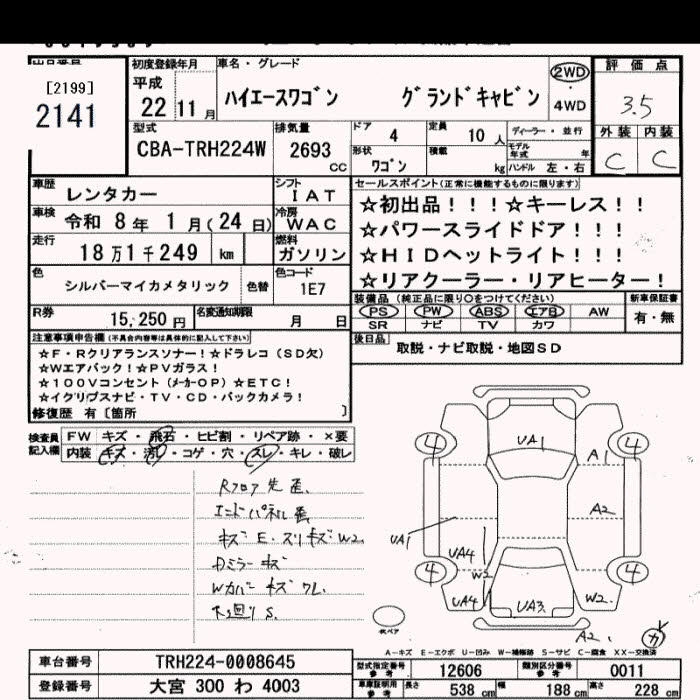 出品番号
[2199]
2141
初度登録年月
平成
22 11 月
車名・グレード
ハイエースワゴン グランドキャビン
2WD
4WD
評価点
3.5
外装 内装
C C
型式
CBA-TRH224W
排気量
2693 CC
ドア 4
定員 10 人
ディーラー・並行
形状 ワゴン
積載 kg
モデル年式 年
ハンドル 左・右
車歴 レンタカー
シフト IAT
車検 令和 8 年 1 月 (24 日)
冷房 WAC
走行 18万1千249 km
燃料 ガソリン
色 シルバーマイカメタリック 色替
色コード 1E7
R券 15,250 円
名変通知期限 月 日
セールスポイント(正常に機能するものに限ります)
☆初出品!!!☆キーレス!!
☆パワースライドドア!!!
☆HIDヘットライト!!!
☆リアクーラー・リアヒーター!
装備品 (純正品に限り○をつけてください)
新車保証書
PS PW ABS エアB AW
SR ナビ TV カワ
有・無
後日品 取説・ナビ取説・地図SD
注意事項申告欄(不具合内容等は具体的に記入して下さい)
☆F・Rクリアランスソナー!☆ドラレコ(SD欠)
☆Wエアバック!☆PVガラス!
☆100Vコンセント(メーカーOP)☆ETC!
☆イクリプスナビ・TV・CD・バックカメラ!
修復歴 有〔箇所 〕
検査員記入欄
FW キズ・飛石・ヒビ割・リペア跡・×要
内装 キズ・汚レ・コゲ・穴・スレ・キレ・破レ
Rフロア先歪
エンドパネル歪
キズ E・スリキズ W2
Dミラーキズ
Wカバーキズ ワレ
下廻りS
4 4
UA1
A1
A2
UA1
UA4
W2
4 4
UA4
UA3
W2
A2
カ
A-キズ E-エクボ U-凹み W-補修跡 S-サビ C-腐食 XX-交換済
車台番号 TRH224-0008645
登録番号 大宮 300 わ 4003
型式指定番号 参考 12606
類別区分番号 参考 0011
車庫証明用 参考
長さ 538 cm 幅 188 cm 高さ 228 cm